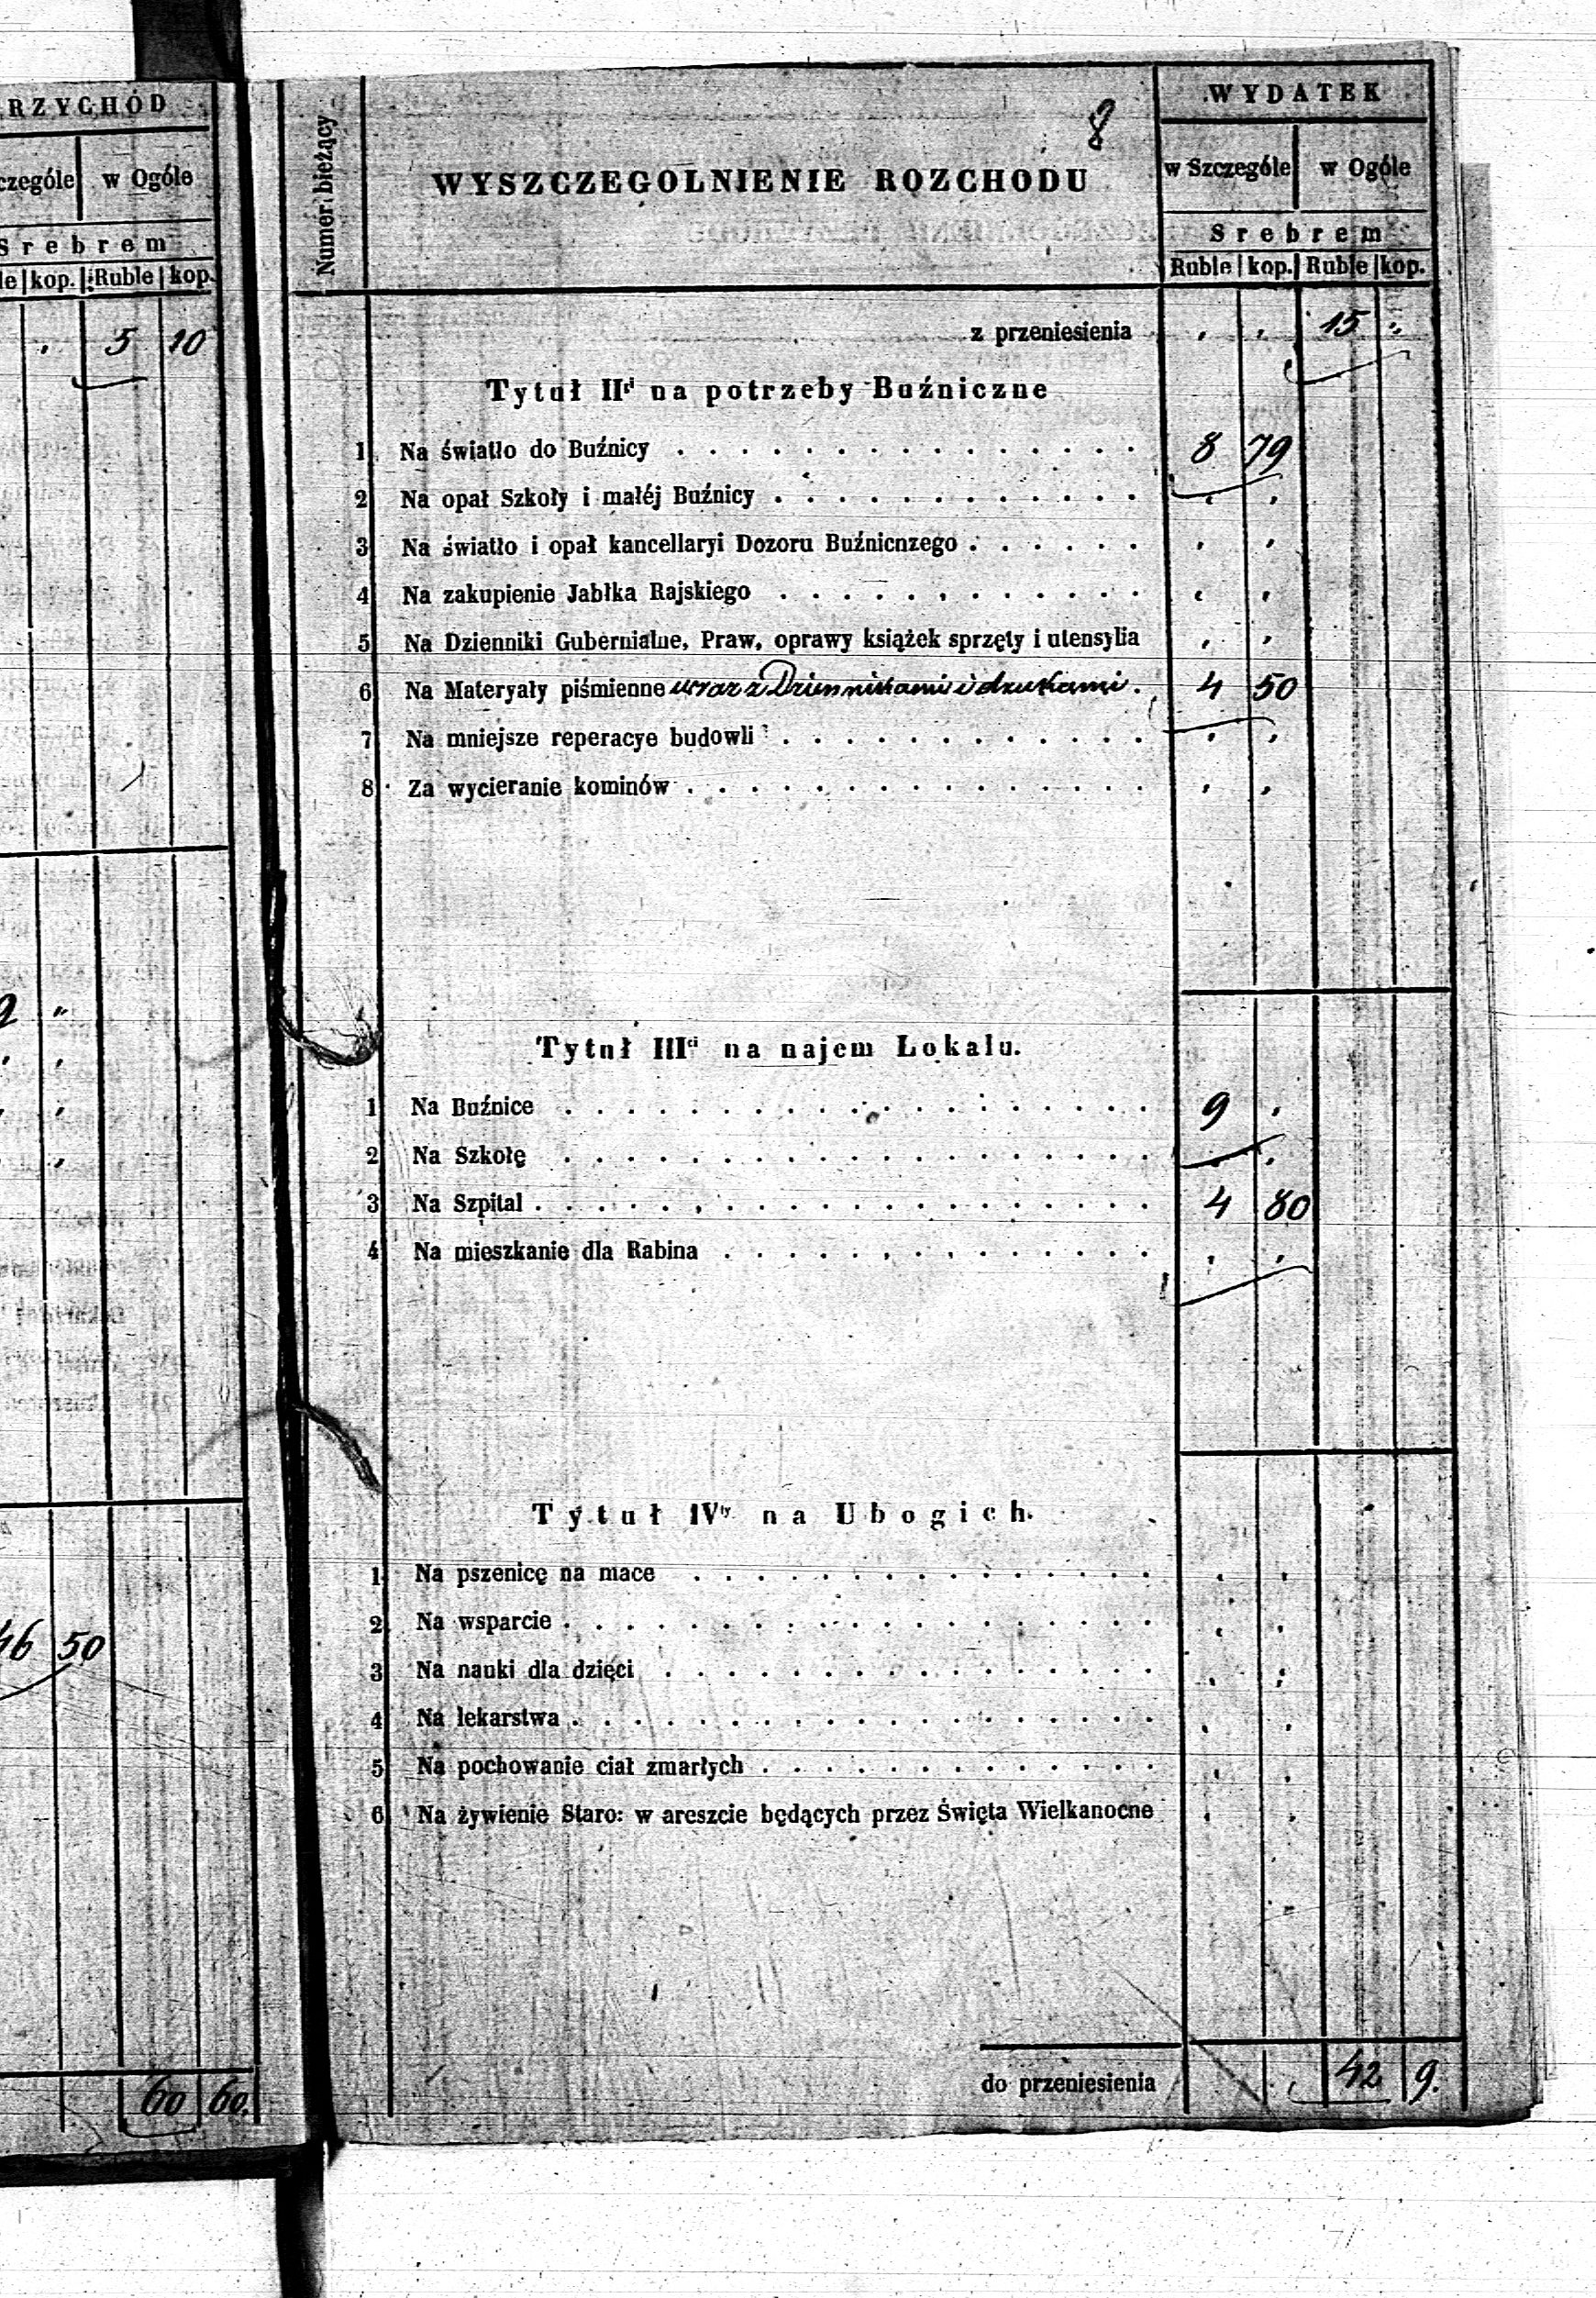 RZYCHÓD
czególe w Ogóle
Srebrem
le kop. Ruble kop.
5 10
2 "
46 50
60 60.
8
Numer bieżący
WYSZCZEGOLNIENIE ROZCHODU
WYDATEK
w Szczególe w Ogóle
Srebrem
Ruble kop. Ruble kop.
z przeniesienia 15
Tytuł IIgi na potrzeby Buźniczne
1 Na światło do Buźnicy 8 79
2 Na opał Szkoły i małéj Buźnicy
3 Na światło i opał kancellaryi Dozoru Buźnicnzego
4 Na zakupienie Jabłka Rajskiego
5 Na Dzienniki Gubernialne, Praw, oprawy książek sprzęty i utensylia
6 Na Materyały piśmienne wraz z Dziennikami i drukami. 4 50
7 Na mniejsze reperacye budowli
8 Za wycieranie kominów
Tytuł IIIci na najem Lokalu.
1 Na Buźnice 9
2 Na Szkołę
3 Na Szpital 4 80
4 Na mieszkanie dla Rabina
Tytuł IVty na Ubogich.
1 Na pszenicę na mace
2 Na wsparcie
3 Na nauki dla dzięci
4 Na lekarstwa
5 Na pochowanie ciał zmarłych
6 Na żywienie Staro: w areszcie będących przez Święta Wielkanocne
do przeniesienia 42 9.